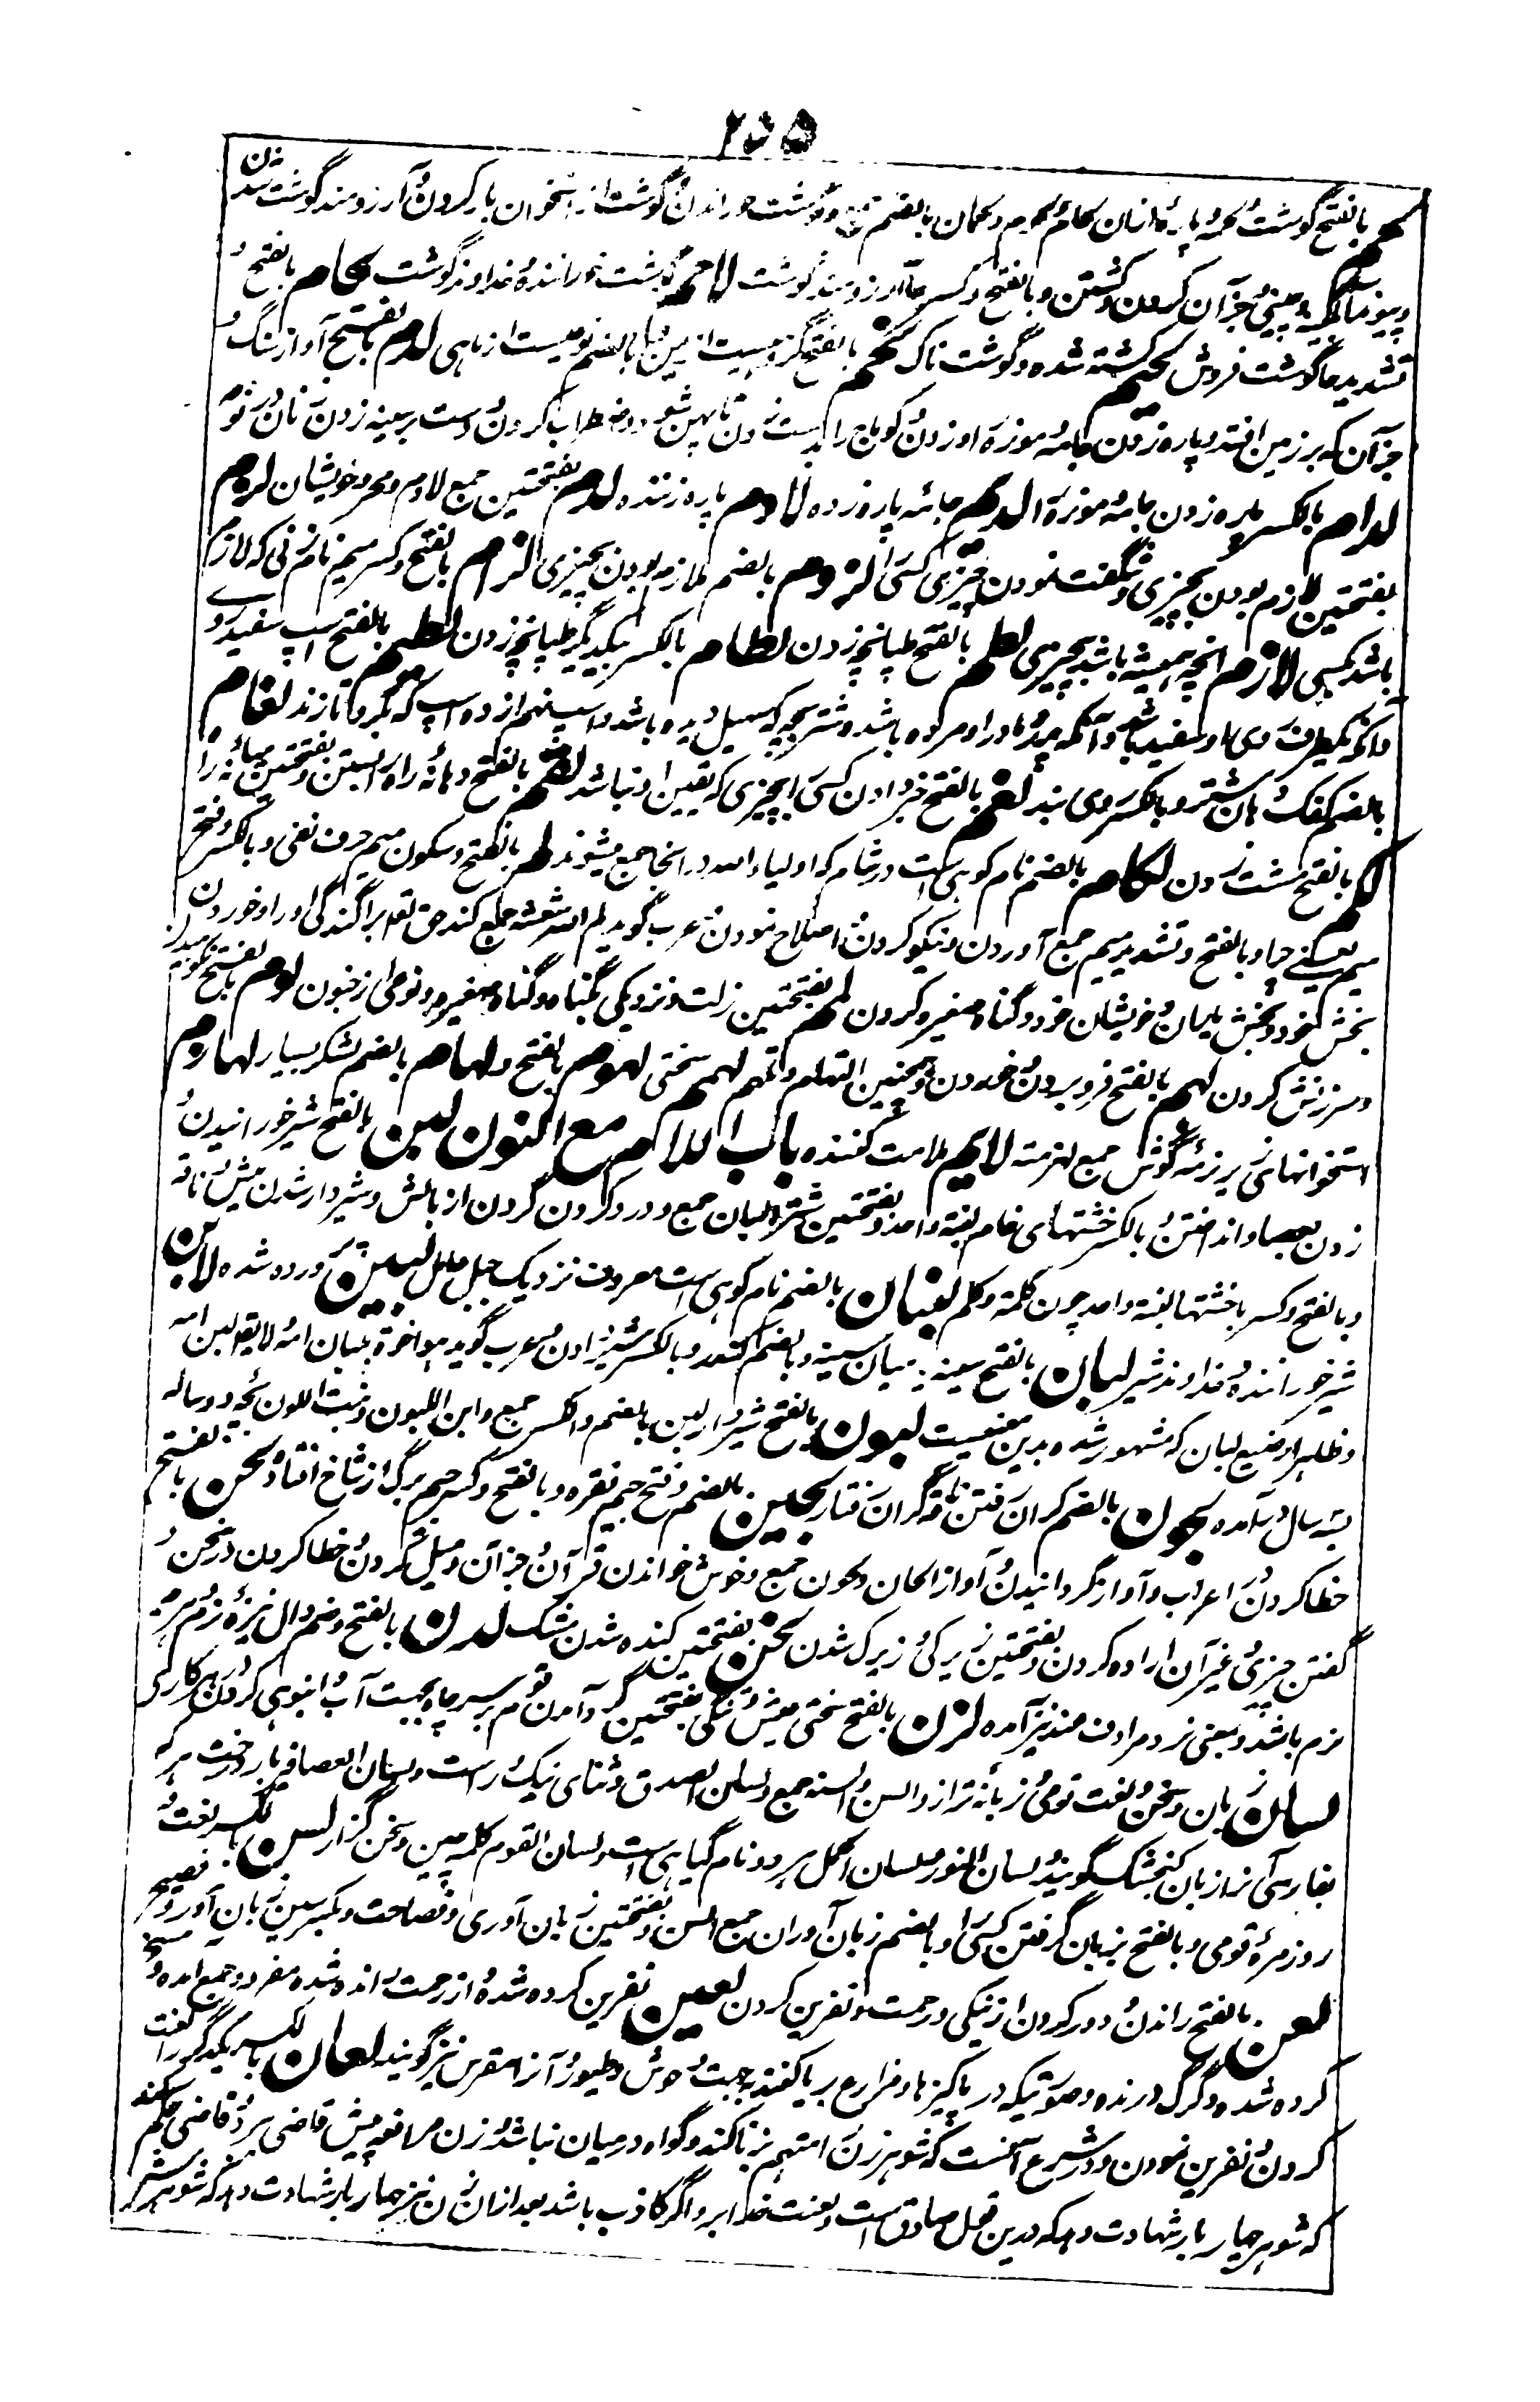 ۲۵۵
لحم بالفتح گوشت لحمة پارهٔ ازان لحام لحوم ولحمان بالضم جمع وگوشت خوراندن گوشت از استخوان باز کردن آرزومند گوشت شدن
وپیوند چیزی جز آن کردن وکشتن وبالفتح وکسر حا آرزومند گوشت لاحم گوشت خوراننده خداوند گوشت لحام بالفتح
تشدید حا گوشت فروش لحیم کشته شده وگوشت ناک لخم بالفتح گروهیست از یمن بالضم نوعیست از ماهی لدم بالفتح آواز سنگ
جز آن که بر زمین افتد وپاره زدن جامه موزه او زدن کوماج را بدست زدن تا پهن شود واضطراب کردن دست بر سینه زدن نان در نو
لدام بالکسر پاره زدن جامه موزه الدیم جامهٔ پاره زده لادم پاره زننده لدم بفتحتین جمع لادم ومحرم خویشان لزم
بفتحتین لازم بودن بچیزی وشگفت نمودن چیزی کسی لزوم بالضم ملازم بودن بچیزی لزام بالفتح وکسر میم نام زنی که لازم
باشد بکسی لازم آنچه همیشه باشد بچیزی لطم بالفتح طپانچه زدن لطام بالکسر بیکدیگر طپانچه زدن لطیم بالفتح اسپ سفید روی
واگر یکطرف روی او سفید باشد وآنکه پدر ومادر او مرده باشد وشتر بچه که سهیل دیده باشد واسپ نهم از ده اسپ که بگرو تازند لغام
بالضم کفک دهان شتر وبالکسر روی بند لغم بالفتح خبر دادن کسی را بچیزی که یقین او نباشد لقم بالفتح دهانهٔ راه را بستن وبفتحتین میانهٔ راه
لکم بالفتح مشت زدن لکام بالضم نام کوهی است در شام که اولیاء الله در آنجا جمع میشوند لم بالفتح وسکون میم حرف نفی وبالکسر وفتح
میم یعنی چرا وبالفتح وتشدید میم جمع آوردن ونیکو کردن اصلاح نمودن عرب گوید لم الله شعثه جمع کند حق تعالی پراگندگی او را وخوردن
بخش خود وبخش یاران وخویشان خود وگناه صغیره کردن لمم بفتحتین زلت ونزدیکی بگناه وگناه صغیره ونوعی از جنون لوم بالفتح نکوهیدن
وسرزنش کردن لهم بالفتح فرو بردن خوردن وهمچنین التهام وتلهم لهیم سختی لهوم بالفتح ولهام بالضم لشکر بسیار لهازم
استخوانهای زیر نرمهٔ گوش جمع لهزمه لایم ملامت کننده باب اللام مع النون لبن بالفتح شیر خورانیدن
زدن بعصا وانداختن بالکسر خشتهای خام لبنه واحد وبفتحتین شیر البان جمع ودرد کردن گردن از بالش وشیر دار شدن میش ناقه
وبالفتح وکسر با خشتها لبنه واحد چون کلمه وکلم لبنان بالضم نام کوهی است معروف نزدیک جبل عامل لبین پرورده شده لابن
شیر خوراننده خداوند شیر لبان بالفتح سینه ومیان سینه وبالضم کندر وبالکسر شیر دادن عرب گوید هو اخوه بلبان امه لا یقال بلبن امه
وظاهرا رضیع لبان که مشهور شده بدین معنیست لبون بالفتح شیر دار لبن بالضم والکسر جمع وابن اللبون وبنت اللبون بچه دو ساله
بسه سال در آمده لجون بالضم گران رفتن ناقه گران رفتار لجین بالضم وفتح جیم نقره وبالفتح وکسر جیم برگ از شاخ افتاده لحن بالفتح
خطا کردن در اعراب وآواز گردانیدن آواز الحان ولحون جمع وخوش خواندن قرآن جز آن ومیل کردن خطا کردن در سخن
گفتن چیزی غیر آن اراده کردن وبفتحتین زیرکی زیرک شدن لخن بفتحتین گنده شدن مشک لدن بالفتح وضم دال نیزه نرم هر چه
نرم باشد وبمعنی نزد مرادف عند نیز آمده لزن بالفتح سختی عیش وتنگی بفتحتین گرد آمدن قوم بر سر چاه بجهت آب انبوهی کردن در هر کاری که
لسان زبان وسخن ولغت قومی زبانهٔ ترازو والسن والسنه جمع ولسان الصدق وثنای نیک راست ولسان العصافیر بار درخت هر که
بفارسی آنرا زبان کنجشک گویند لسان الثور ولسان الحمل هر دو نام گیاهی است ولسان القوم کلمه چین وسخن گزار لسن بالکسر لغت
روزمرهٔ قومی وبالفتح بزبان گرفتن کسی را وبالضم زبان آوران جمع السن وبفتحتین زبان آوری وفصاحت وبکسر سین زبان آور وفصیح
لعن بالفتح راندن دور کردن از نیکی ورحمت ونفرین کردن لعین نفرین کرده شده از رحمت رانده شده مفرد وجمع آمده ومسخ
کرده شده وگرگ درنده وصورتیکه در پاکیزها ومزارع برپا کنند بجهت وحوش وطیور آنرا مترس نیز گویند لعان بالکسر بیکدیگر را لعنت
کردن نفرین نمودن ودر شرع آنست که شوهر زن را متهم بزنا کند وگواه در میان نباشد زن مرافعه پیش قاضی برد قاضی حکم کند
که شوهر چهار بار شهادت دهد که درین قول صادق است ولعنت خدا بر او اگر کاذب باشد بعد ازان زن نیز چهار بار شهادت دهد که شوهرش